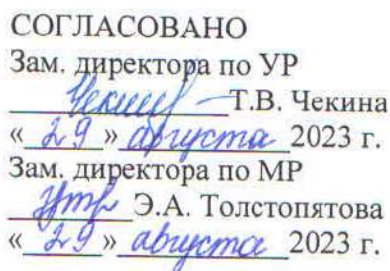 СОГЛАСОВАНО
Зам. директора по УР
Чекина Т.В. Чекина
« 29 » августа 2023 г.
Зам. директора по МР
Э.А. Толстопятова
« 29 » августа 2023 г.